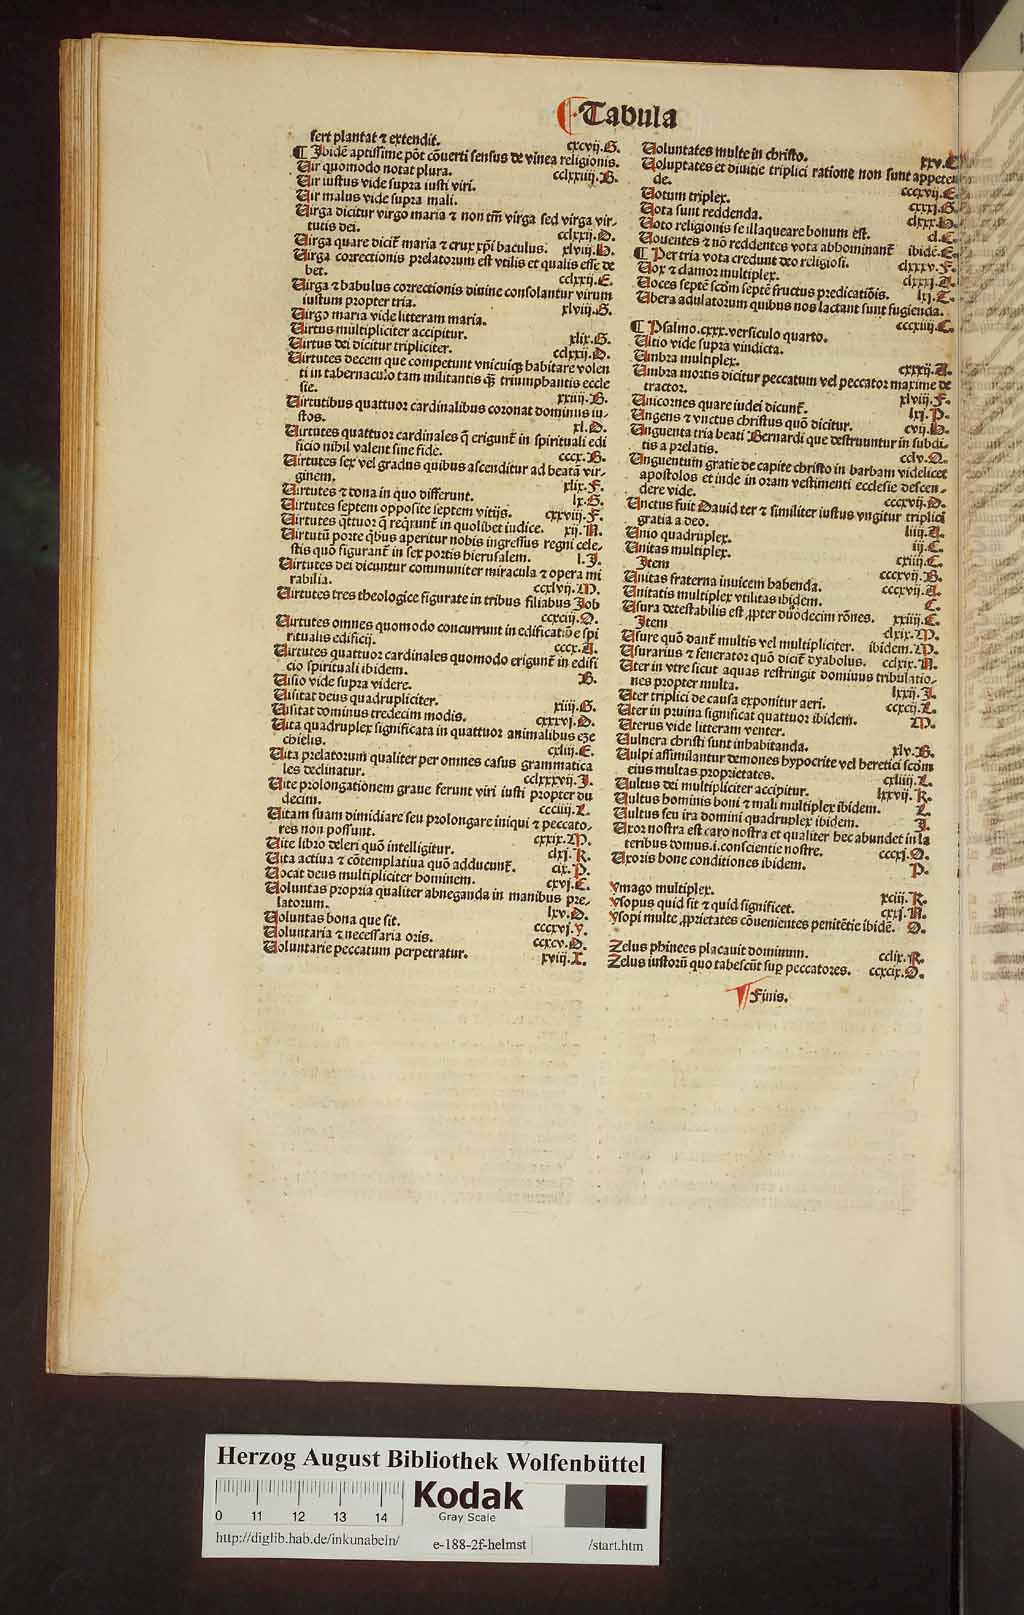 Tabula
fert plantat ⁊ extendit. cxcvij.G.
¶ Ibidē aptissime pōt cōuerti sensus de vinea religionis.
Uir quomodo notat plura. cclxxiiij.B.
Uir iustus vide supra iusti viri.
Uir malus vide supra mali.
Uirga dicitur virgo maria ⁊ non tm̄ virga sed virga vir-
tutis dei. cclxxij.D.
Uirga quare dicit̄ maria ⁊ crux xp̄i baculus. xlviij.H.
Uirga correctionis prelatorum est vtilis et qualis esse de
bet. cclxxij.E.
Uirga ⁊ babulus correctionis diuine consolantur virum
iustum propter tria. xlviij.G.
Uirgo maria vide litteram maria.
Uirtus multipliciter accipitur. xlix.G.
Uirtus dei dicitur tripliciter. cclxxij.D.
Uirtutes decem que competunt vnicuiqꝫ habitare volen
ti in tabernaculo tam militantis qꝫ triumphantis eccle
sie. xxiij.B.
Uirtutibus quattuor cardinalibus coronat dominus iu-
stos. xl.D.
Uirtutes quattuor cardinales q̄ erigunt̄ in spirituali edi
ficio nihil valent sine fide. cccx.B.
Uirtutes sex vel gradus quibus ascenditur ad beatā vir-
ginem. xlix.F.
Uirtutes ⁊ dona in quo differunt. lx.G.
Uirtutes septem opposite septem vitijs. cxxviij.F.
Uirtutes q̄ttuor q̄ reqrunt̄ in quolibet iudice. xij.N.
Uirtutū porte qbus aperitur nobis ingressus regni cele-
stis quō figurant̄ in sex portis hierusalem. l.I.
Uirtutes dei dicuntur communiter miracula ⁊ opera mi
rabilia. ccxlvij.M.
Uirtutes tres theologice figurate in tribus filiabus Job
ccxciij.O.
Uirtutes omnes quomodo concurrunt in edificatiōe spi
ritualis edificij. cccx.A.
Uirtutes quattuor cardinales quomodo erigunt̄ in edifi
cio spirituali ibidem. B.
Uisio vide supra videre.
Uisitat deus quadrupliciter. xiiij.G.
Uisitat dominus tredecim modis. cxxxvj.D.
Uita quadruplex significata in quattuor animalibus eze
chielis. cxliij.E.
Uita prelatorum qualiter per omnes casus grammatica
les declinatur. cclxxxvij.I.
Uite prolongationem graue ferunt viri iusti propter du
decim. ccciiij.L.
Uitam suam dimidiare seu prolongare iniqui ⁊ peccato-
res non possunt. cxxix.M.
Uite libro deleri quō intelligitur. clxj.K.
Uita actiua ⁊ cōtemplatiua quō adducunt̄. cix.P.
Uocat deus multipliciter hominem. cxvj.C.
Uoluntas propria qualiter abneganda in manibus pre-
latorum. lxv.D.
Uoluntas bona que sit. cccxvj.y.
Uoluntaria ⁊ necessaria oris. ccxcv.D.
Uoluntarie peccatum perpetratur. xviij.X.
Uoluntates multe in christo. xxv.
Uoluptates et diuitie triplici ratione non sunt appeten
de. cccxvij.E.
Uotum triplex. cxxxj.G.
Uota sunt reddenda. clxxx.D.
Uoto religionis se illaqueare bonum est. cl.C.
Uouentes ⁊ nō reddentes vota abbominant̄ ibidē.E.
¶ Per tria vota credunt deo religiosi. clxxxv.F.
Uox ⁊ clamor multiplex. clxxxj.A.
Uoces septē scd̄m septē fructus predicatiōis. lxj.T.
Ubera adulatorum quibus nos lactant sunt fugienda.
cccxiiij.C.
¶ Psalmo.cxxx.versiculo quarto.
Ultio vide supra vindicta.
Umbra multiplex. cxxxij.A.
Umbra mortis dicitur peccatum vel peccator maxime de
tractor. xlviij.F.
Unicornes quare iudei dicunt̄. lxj.P.
Ungens ⁊ vnctus christus quō dicitur. cvij.H.
Unguenta tria beati Bernardi que destruuntur in subdi-
tis a prelatis. cclv.N.
Unguentum gratie de capite christo in barbam videlicet
apostolos et inde in oram vestimenti ecclesie descen-
dere vide. cccxvij.D.
Unctus fuit Dauid ter ⁊ similiter iustus vngitur triplici
gratia a deo. liiij.A.
Unio quadruplex. iij.C.
Unitas multiplex. cxiij.C.
Item cccxvij.B.
Unitas fraterna inuicem habenda. cccxvij.A.
Unitatis multiplex vtilitas ibidem. C.
Usura detestabilis est ꝓpter duōdecim rōnes. xxiiij.C.
Item clxix.M.
Usure quō dant̄ multis vel multipliciter. ibidem.M.
Usurarius ⁊ fenerator quō dicit̄ dyabolus. cclxix.N.
Uter in vtre sicut aquas restringit dominus tribulatio-
nes propter multa. lxxij.I.
Uter triplici de causa exponitur aeri. ccxcij.L.
Uter in pruina significat quattuor ibidem. M.
Uterus vide litteram venter.
Uulnera christi sunt inhabitanda. xlv.B.
Uulpi assimilantur demones hypocrite vel heretici scd̄m
eius multas proprietates. cxliiij.L.
Uultus dei multipliciter accipitur. lxxvij.K.
Uultus hominis boni ⁊ mali multiplex ibidem. L.
Uultus seu ira domini quadruplex ibidem. I.
Uxor nostra est caro nostra et qualiter hec abundet in la
teribus domus.i.conscientie nostre. cccxj.O.
Uxoris bone conditiones ibidem. P.
ymago multiplex. xciij.K.
ysopus quid sit ⁊ quid significet. cxxj.N.
ysopi multe ꝓprietates cōuenientes penitētie ibidē. O.
Zelus phinees placauit dominum. cclix.K.
Zelus iustorū quo tabescūt suꝑ peccatores. ccxcix.O.
¶ Finis.
Herzog August Bibliothek Wolfenbüttel
0 11 12 13 14
Kodak
Gray Scale
http://diglib.hab.de/inkunabeln/ e-188-2f-helmst /start.htm